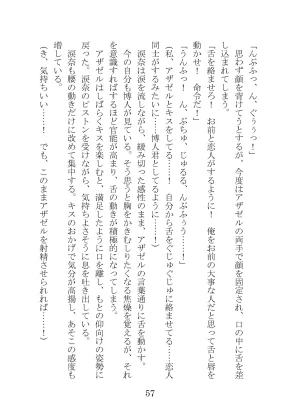 「んぶふっ、ん、ぐぅぅっ!」
思わず顔を背けようとするが、今度はアザゼルの両手で顔を固定され、口の中に舌を差
し込まれてしまう。
「舌を絡ませろ! お前と恋人がするように! 俺をお前の大事な人だと思って舌と唇を
動かせ! 命令だ!」
「うんっふ! ん、ぶちゅ、じゅるる、んぶふぅっ……!」
(私、アザゼルとキスをしてる……! 自分から舌をぐじゅぐじゅに絡ませてる……恋人
同士がするみたいに……博人君としてるように……!)
涙奈は涙を流しながら、緩み切った感性のまま、アザゼルの言葉通りに舌を動かす。
今の自分を博人が見ている。そう思うと胸をかきむしりたくなる焦燥を覚えるが、それ
を意識すればするほど官能が高まり、舌の動きが積極的になってしまう。
アザゼルはしばらくキスを楽しむと、満足したように口を離し、もとの仰向けの姿勢に
戻った。涙奈のピストンを受けながら、気持ちよさそうに息を吐き出している。
涙奈も腰の動きだけに改めて集中する。キスのおかげで気分が高揚し、あそこの感度も
増している。
(き、気持ちいい……! でも、このままアザゼルを射精させられれば……!)
57